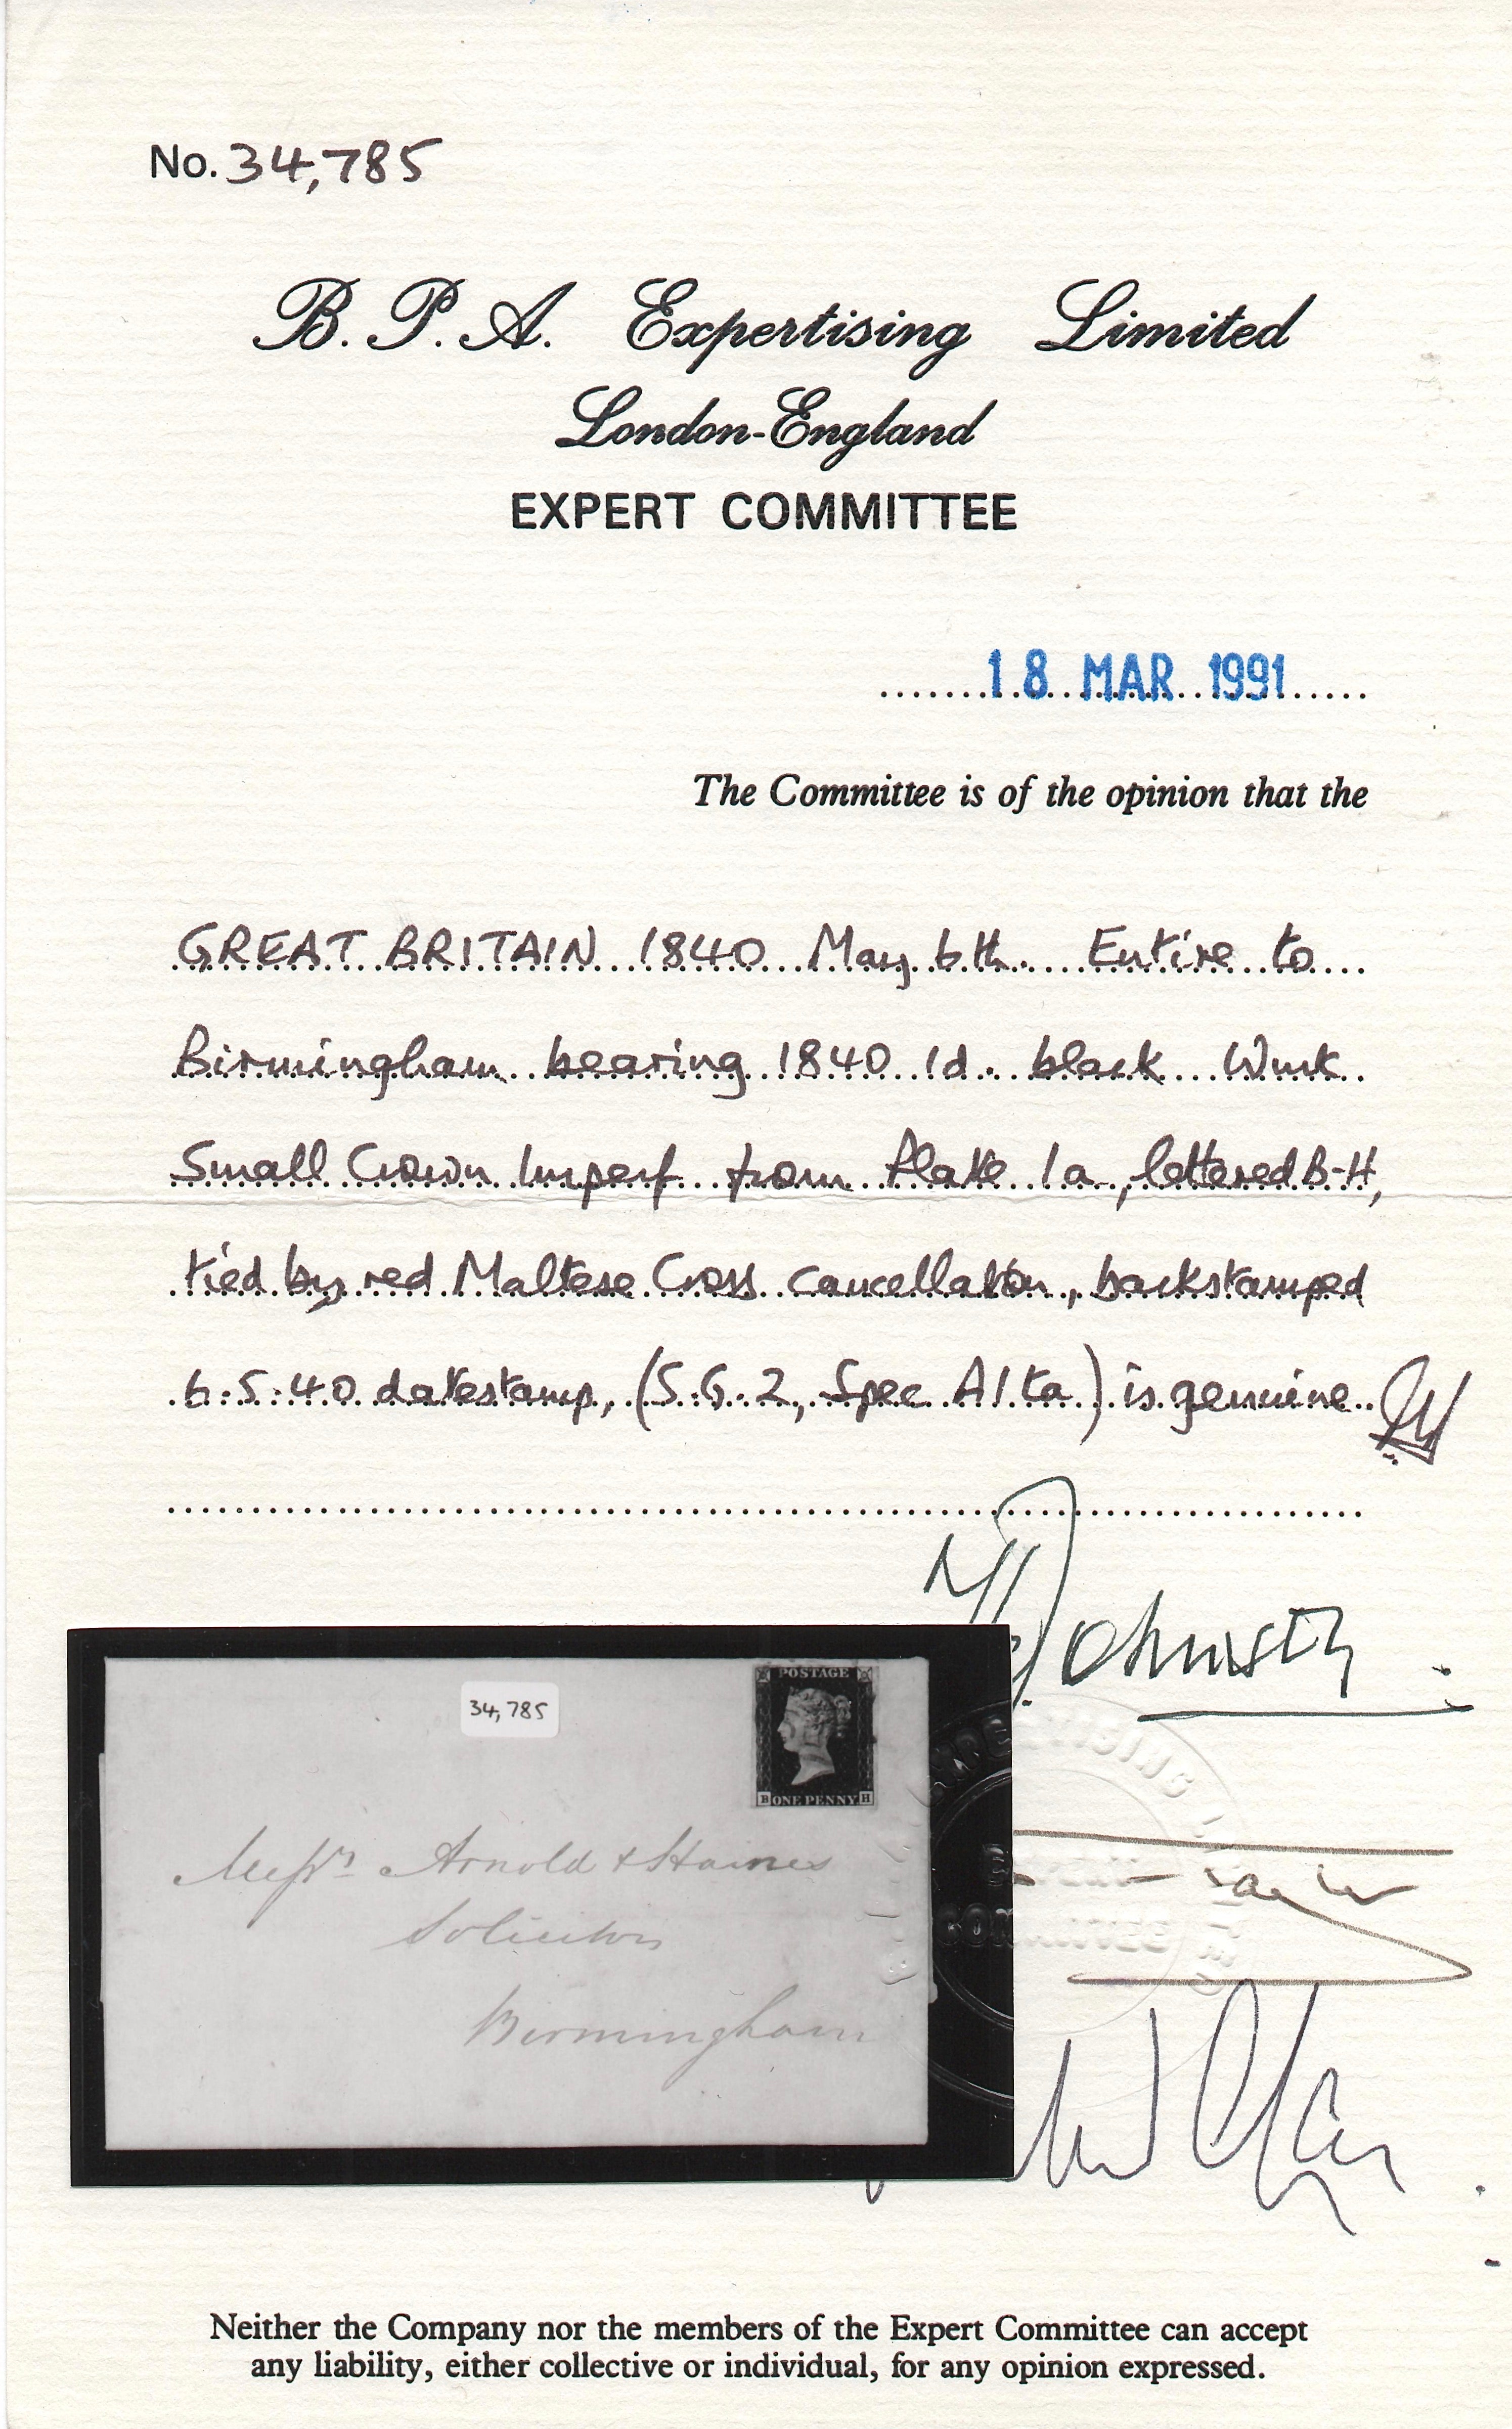 No. 34,785
B. P. A. Expertising Limited
London-England
EXPERT COMMITTEE
18 MAR 1991
The Committee is of the opinion that the
GREAT BRITAIN 1840 May 6th. Entire to
Birmingham bearing 1840 1d. black Wmk
Small Crown Imperf from Plate 1a, lettered B-H,
tied by red Maltese Cross cancellation, backstamped
6:5:40 datestamp, (S.G. 2, Spec A1ta) is genuine.
34,785
POSTAGE
B ONE PENNY H
Messrs Arnold & Haines
Solicitors
Birmingham
Neither the Company nor the members of the Expert Committee can accept
any liability, either collective or individual, for any opinion expressed.